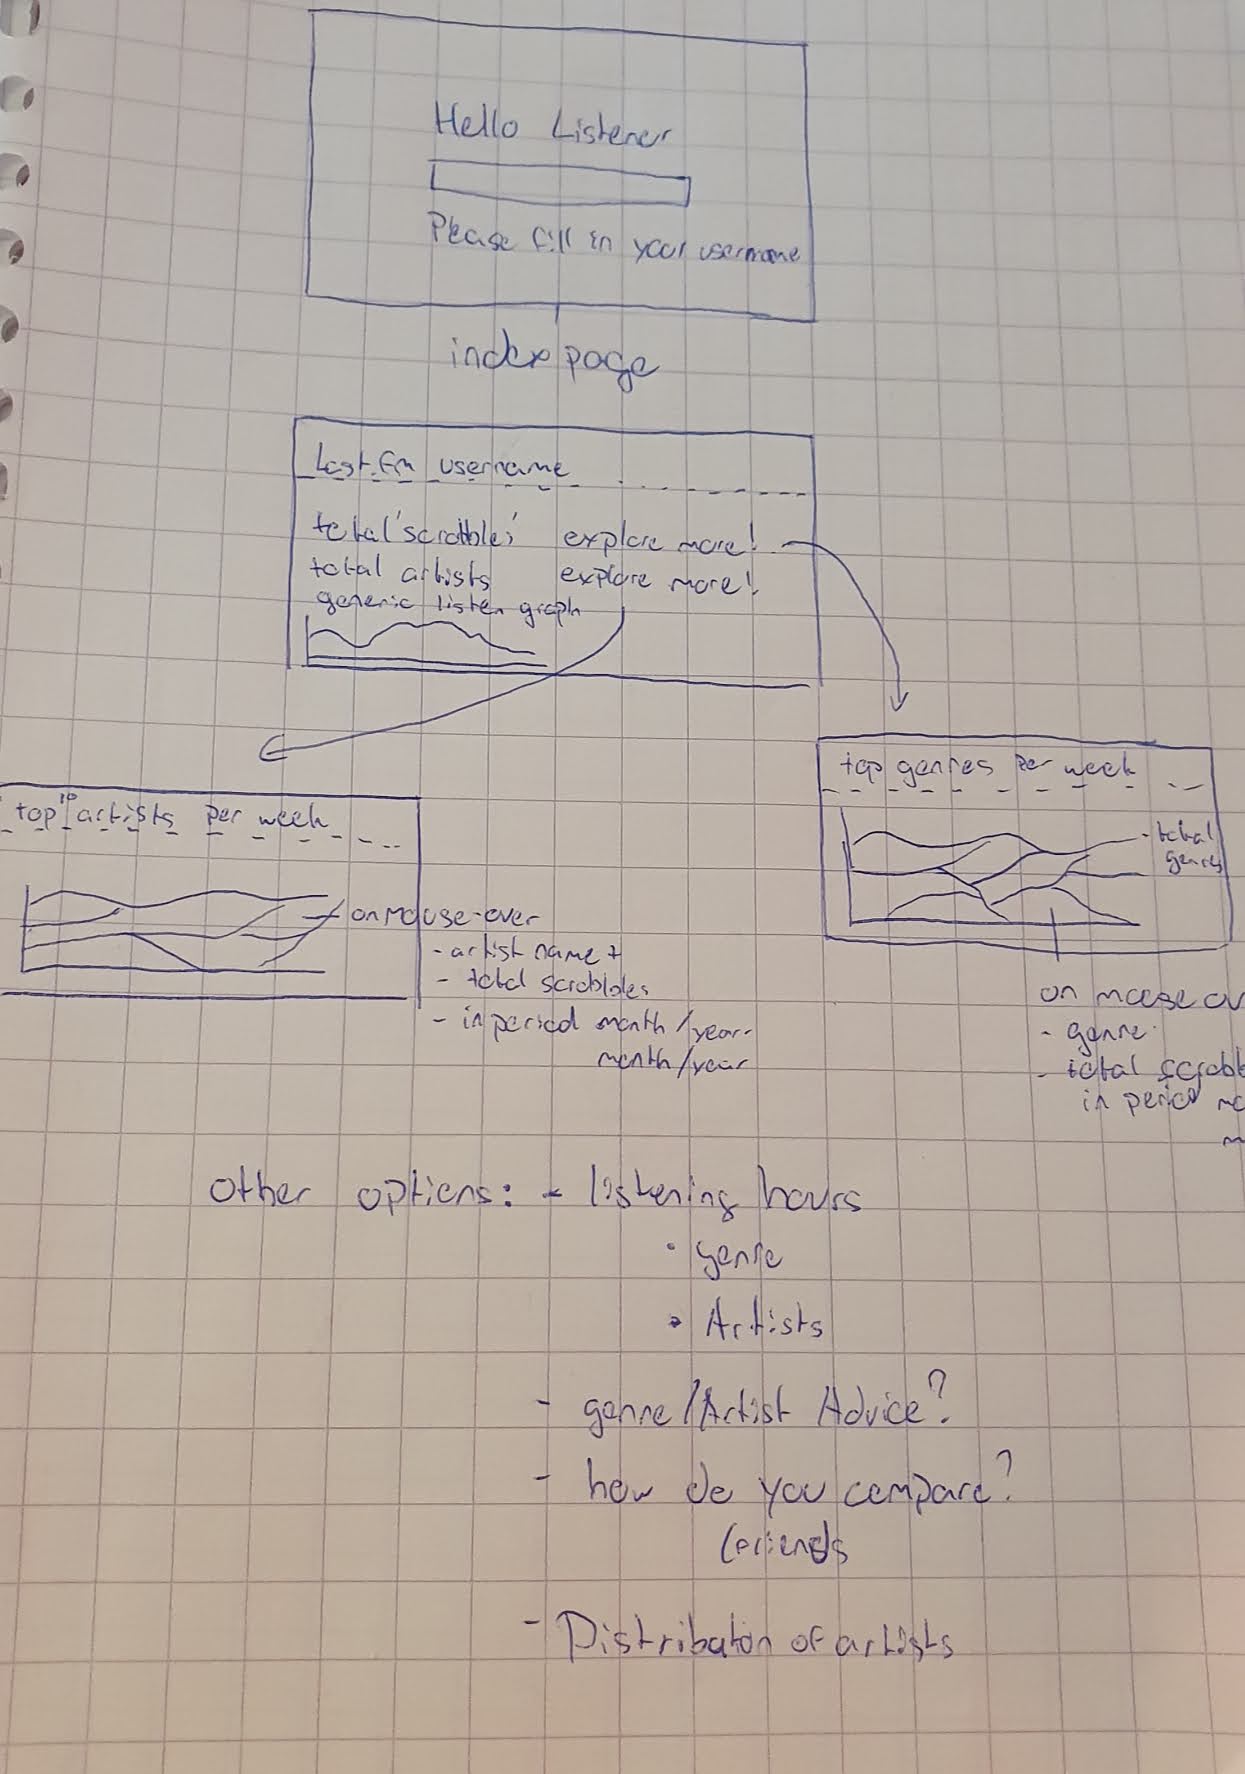 Hello Listener
Please fill in your username
index page
Last.fm username
total 'scrobbles' explore more!
total artists explore more!
generic listen graph
top 10 artists per week
on mouse-over
- artist name +
- total scrobbles
- in period month/year-
month/year
top genres per week
- total
genres
on mouse ov
- genre
- total scrobb
in period mo
m
Other options: - listening hours
• genre
• Artists
- genre/Artist Advice?
- how do you compare?
(friends
- Distributon of artists